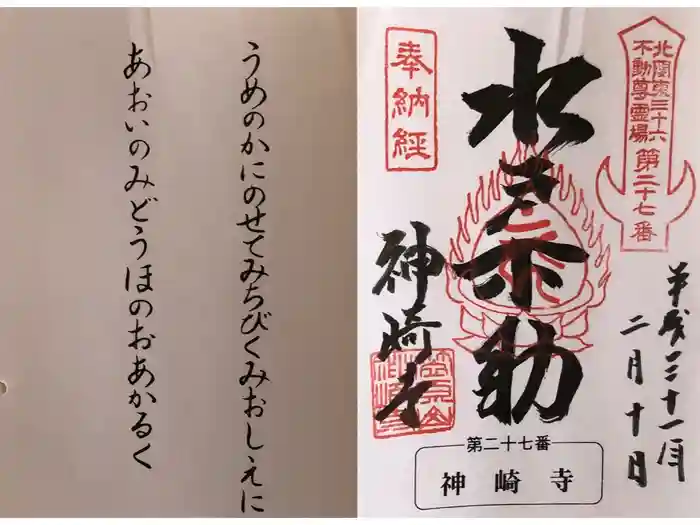 北関東三十六
不動尊霊場
第二十七番
奉納経
水子不助
神崎寺
平成三十一年
二月十日
第二十七番
神崎寺
うめのかにのせてみちびくみおしえに
あおいのみどうほのおあかるく